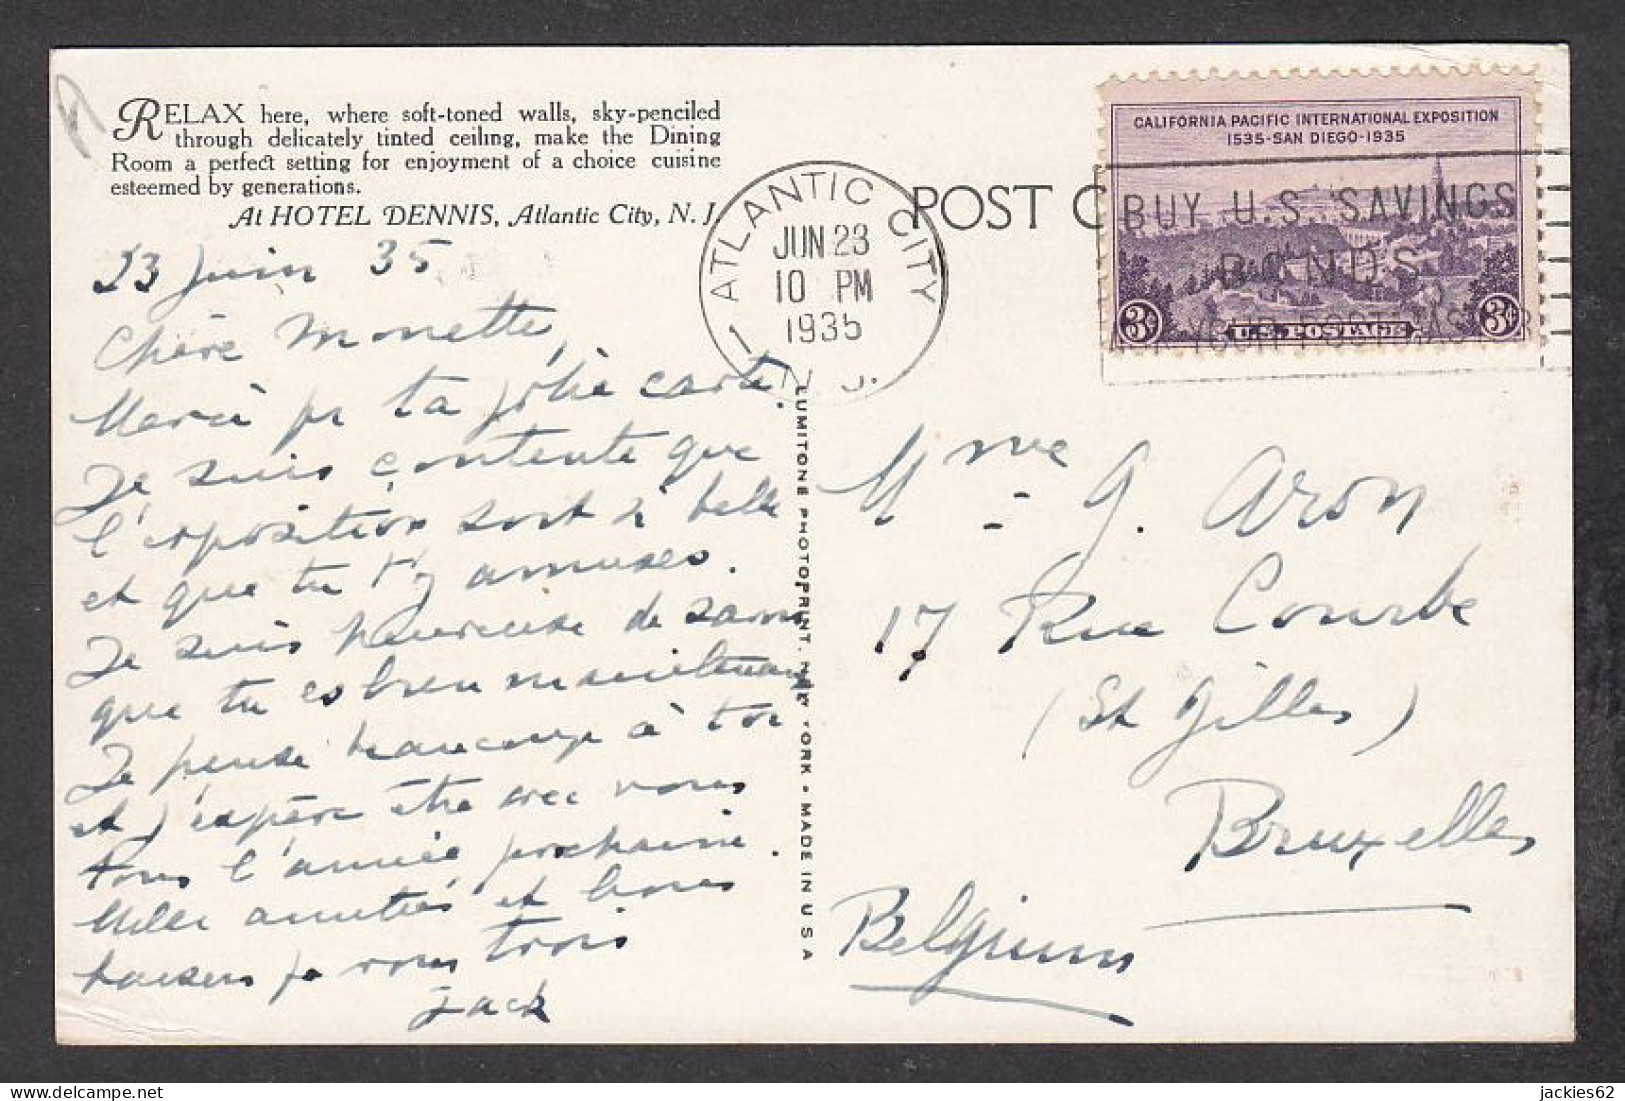 RELAX here, where soft-toned walls, sky-penciled
through delicately tinted ceiling, make the Dining
Room a perfect setting for enjoyment of a choice cuisine
esteemed by generations.
At HOTEL DENNIS, Atlantic City, N. J.
23 juin 35
Chère Monette,
Merci pr ta jolie carte.
Je suis contente que
l'exposition soit si belle
et que tu t'y amuses.
Je suis heureuse de savoir
que tu es bien maintenant
Je pense beaucoup à toi
et j'espère être avec vous
tous l'année prochaine.
Mille amitiés et bons
baisers pr vous trois
Jack
ATLANTIC CITY
N. J.
JUN 23
10 PM
1935
POST C
CALIFORNIA PACIFIC INTERNATIONAL EXPOSITION
1535-SAN DIEGO-1935
BUY U.S. SAVINGS
BONDS
ASK YOUR POSTMASTER
3¢ U.S. POSTAGE 3¢
LUMITONE PHOTOPRINT. NEW YORK • MADE IN U S A
Mme G. Aron
17 Rue Courbe
(St Gilles)
Bruxelles
Belgium
jackies62